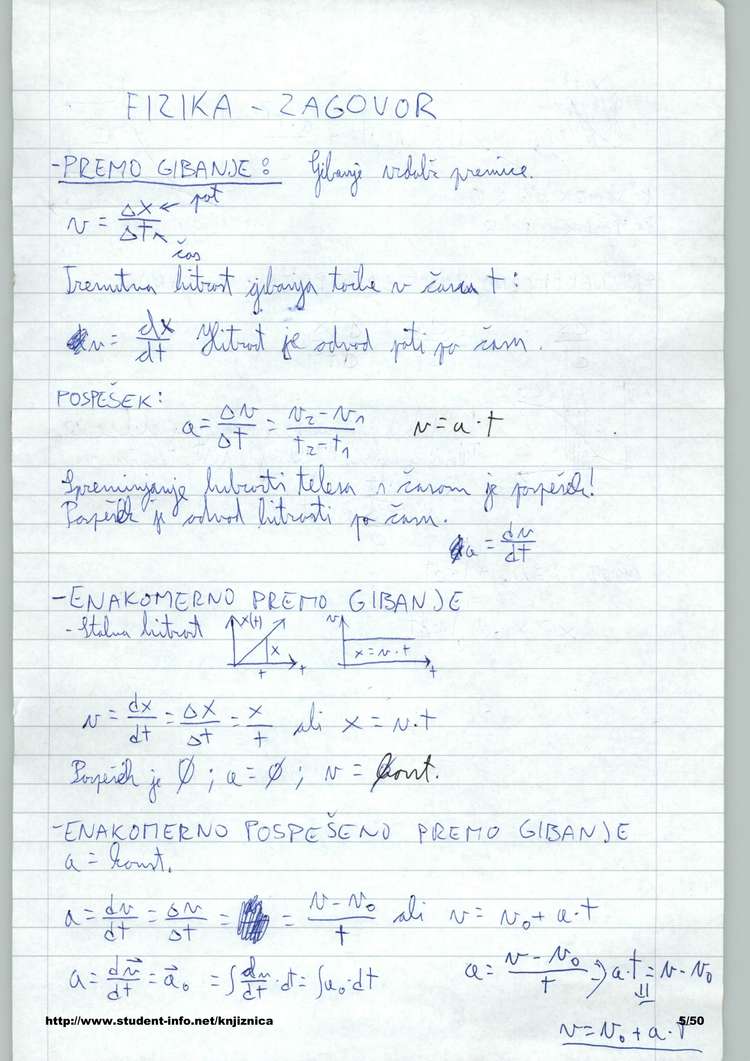 FIZIKA - ZAGOVOR
- PREMO GIBANJE: Gibanje vzdolž premice.
v = Δx/Δt ← pot
čas
Trenutna hitrost gibanja točke v času t:
v = dx/dt Hitrost je odvod poti po času.
POSPEŠEK:
a = Δv/Δt = (v₂-v₁)/(t₂-t₁) v = a·t
Spreminjanje hitrosti telesa s časom je pospešek!
Pospešek je odvod hitrosti po času.
a = dv/dt
- ENAKOMERNO PREMO GIBANJE
- Stalna hitrost x(t) x t v x = v·t t
v = dx/dt = Δx/Δt = x/t ali x = v·t
Pospešek je Ø ; a = Ø ; v = konst.
- ENAKOMERNO POSPEŠENO PREMO GIBANJE
a = konst.
a = dv/dt = Δv/Δt = = (v-v₀)/t ali v = v₀ + a·t
a = dv⃗/dt = a⃗₀ = ∫dv/dt·dt = ∫a₀·dt a = (v-v₀)/t → a·t = v-v₀
v = v₀ + a·t
http://www.student-info.net/knjiznica 5/50